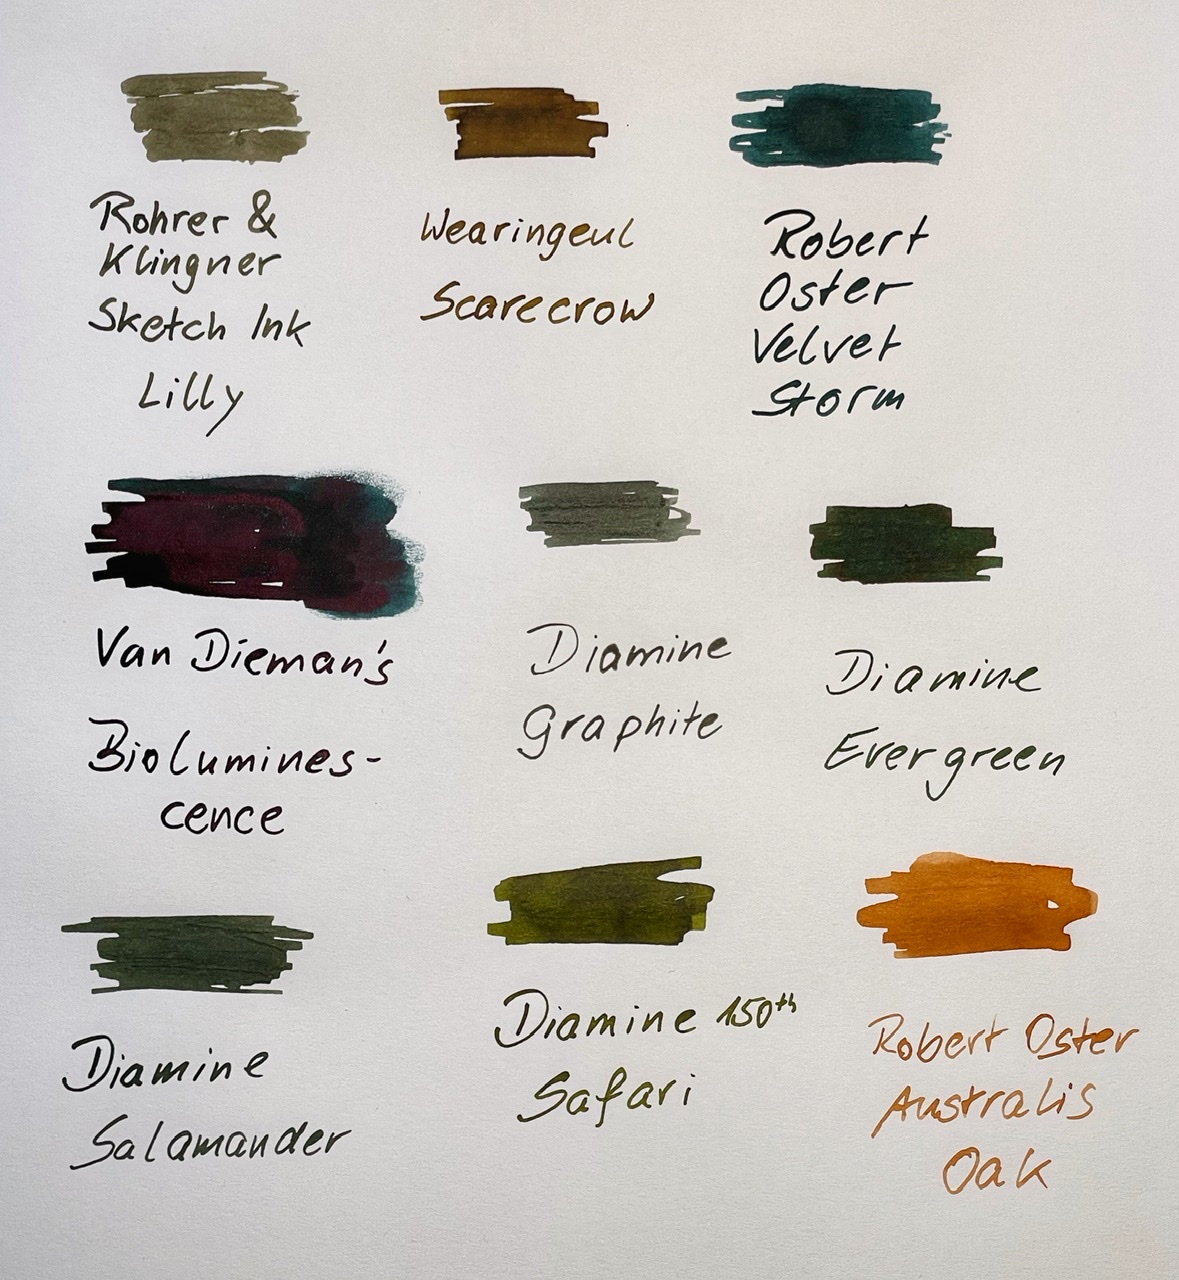 Rohrer &
Klingner
Sketch Ink
Lilly
Wearingeul
Scarecrow
Robert
Oster
Velvet
Storm
Van Dieman's
Biolumines-
cence
Diamine
Graphite
Diamine
Evergreen
Diamine
Salamander
Diamine 150th
Safari
Robert Oster
Australis
Oak